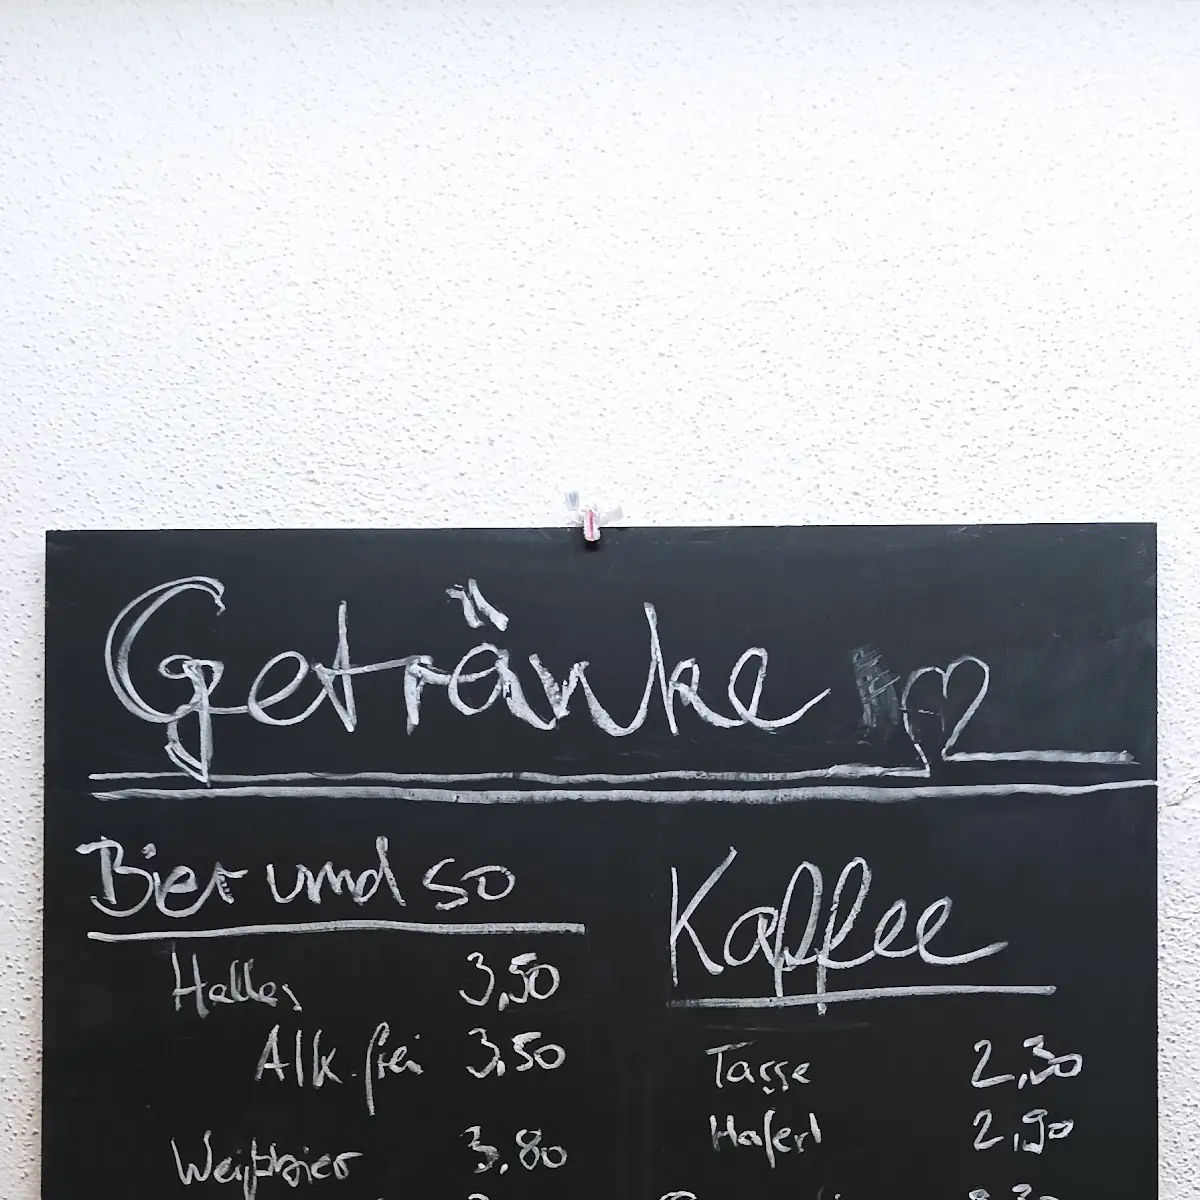 Getränke
Bier und so
Helles 3,50
Alk. frei 3,50
Weißbier 3,80
Kaffee
Tasse 2,30
Haferl 2,90